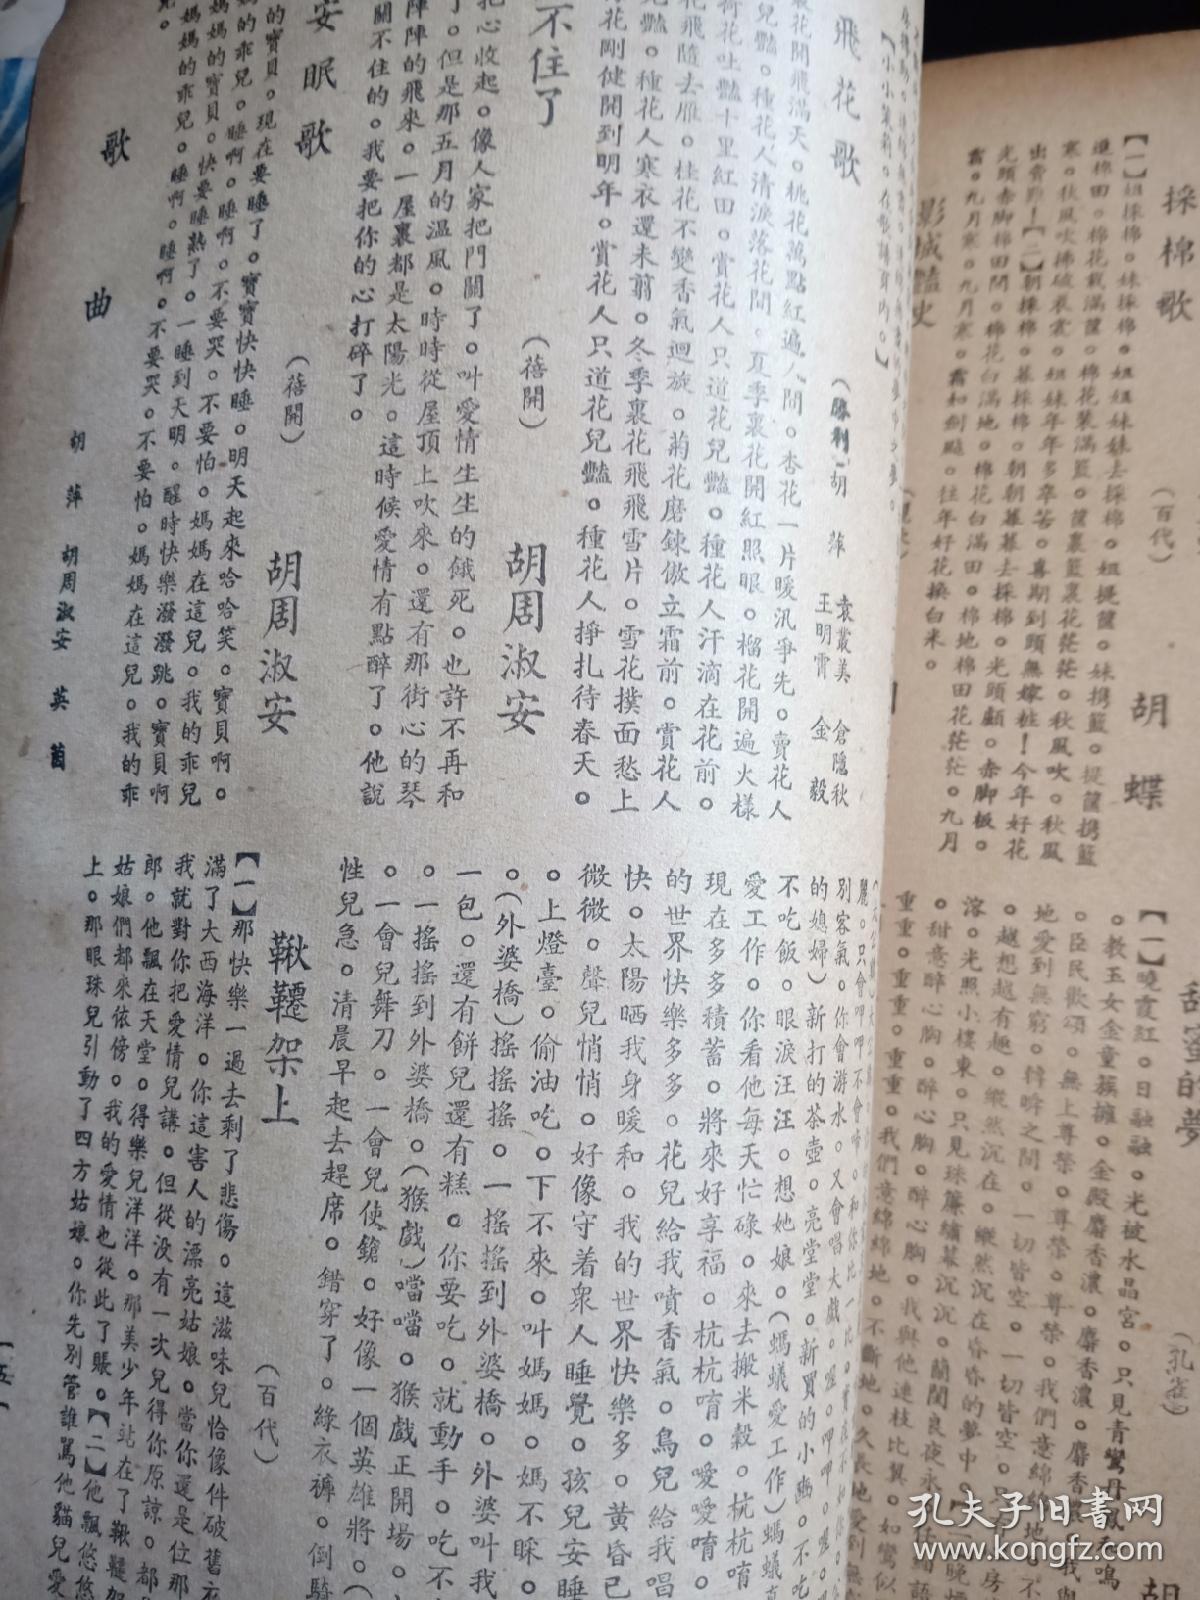 採棉歌
（百代）
胡蝶
【一】姐採棉。妹採棉。姐姐妹妹去採棉。姐提筐。妹携籃。提筐携籃
進棉田。棉花栽滿筐。棉花裝滿籃。筐裏籃裏花茫茫。秋風吹。秋風
寒。秋風吹拂破衣裳。姐妹年年多辛苦。喜期到頭無嫁粧！今年好花
出賣難！【二】朝採棉。暮採棉。朝朝暮暮去採棉。光頭顱。赤脚板。
光頭赤脚棉田間。棉花白滿地。棉花白滿田。棉地棉田花茫茫。九月
霜。九月寒。九月寒。霜如剃颳。往年好花換白米。
影城豔史
甜蜜的夢
（孔雀）
【一】曉霞紅。日融融。光被水晶宮。只見青鸞丹鳳和鳴
。教玉女金童簇擁。金殿麝香濃。麝香濃。麝香
。臣民歡頌。無上尊榮。尊榮。尊榮。我們意綿綿地。不
地愛到無窮。轉眸之間。一切皆空。一切皆空。
。越想越有趣。縱然沉在。縱然沉在昏昏的夢中。【二】晚煙
溶。光照小樓東。只見珠簾繡幕沉沉。蘭閨良夜永
。甜意醉心胸。醉心胸。醉心胸。我與他連枝比翼。如鸞似
重重。重重。重重。我們意綿綿地。不斷地。久長地愛到無
【小小茉莉。在歌譜頁內。】
飛花歌
（勝利）
胡萍
袁叢美
王明霄
倉隱秋
金毅
花開飛滿天。桃花萬點紅遍人間。杏花一片暖汛爭先。賣花人
兒豔。種花人清淚落花間。夏季裏花開紅照眼。榴花開遍火樣
荷花吐豔十里紅田。賞花人只道花兒豔。種花人汗滴在花前。
花飛隨去雁。桂花不變香氣迴旋。菊花磨鍊傲立霜前。賞花人
兒豔。種花人寒衣還未剪。冬季裏花飛飛雪片。雪花撲面愁上
花剛健開到明年。賞花人只道花兒豔。種花人掙扎待春天。
不住了
（蓓開）
胡周淑安
把心收起。像人家把門關了。叫愛情生生的餓死。也許不再和
了。但是那五月的温風。時時從屋頂上吹來。還有那街心的琴
陣陣的飛來。一屋裏都是太陽光。這時候愛情有點醉了。他說
關不住的。我要把你的心打碎了。
安眠歌
（蓓開）
胡周淑安
的寶貝。現在要睡了。寶寶快快睡。明天起來哈哈笑。寶貝啊。
媽的乖兒。睡啊。睡啊。不要哭。不要怕。媽媽在這兒。我的乖兒
媽媽的寶貝。快要睡熟了。一睡到天明。醒時快樂潑潑跳。寶貝啊
媽媽的乖兒。睡啊。睡啊。不要哭。不要怕。媽媽在這兒。我的乖
兒。
歌曲
胡萍
胡周淑安
英茵
麗。只會呷呷不會啼。和你比一比。
別客氣。你會游水。又會唱大戲。喔。喔。呷呷。
的媳婦）新打的茶壺。亮堂堂。新買的小豳。不吃
不吃飯。眼淚汪汪。想她娘。（螞蟻愛工作）螞蟻真
愛工作。你看他每天忙碌。來去搬米穀。杭杭唷
現在多多積蓄。將來好享福。杭杭唷。噯噯唷。
的世界快樂多多。花兒給我噴香氣。鳥兒給我唱
快。太陽晒我身暖和。我的世界快樂多。黃昏已
微微。聲兒悄悄。好像守着衆人睡覺。孩兒安睡
。上燈臺。偷油吃。下不來。叫媽媽。媽不睬。
。（外婆橋）搖搖搖。一搖搖到外婆橋。外婆叫我
一包。還有餅兒還有糕。你要吃。就動手。吃不
。一搖搖到外婆橋。（猴戲）噹噹。猴戲正開場。
。一會兒舞刀。一會兒使鎗。好像一個英雄將。（
性兒急。清晨早起去趕席。錯穿了。綠衣褲。倒騎
鞦韆架上
（百代）
【一】那快樂一過去剩了悲傷。這滋味兒恰像件破舊衣
滿了大西海洋。你這害人的漂亮姑娘。當你還是位那
我就對你把愛情兒講。但從沒有一次兒得你原諒。都
郎。他飄在天堂。得樂兒洋洋。那美少年站在了鞦韆架
姑娘們都來依傍。我的愛情也從此了賬。【二】他飄悠悠
上。那眼珠兒引動了四方姑娘。你先別管誰罵他貓兒愛
【五】
孔夫子旧書网
www.kongfz.com